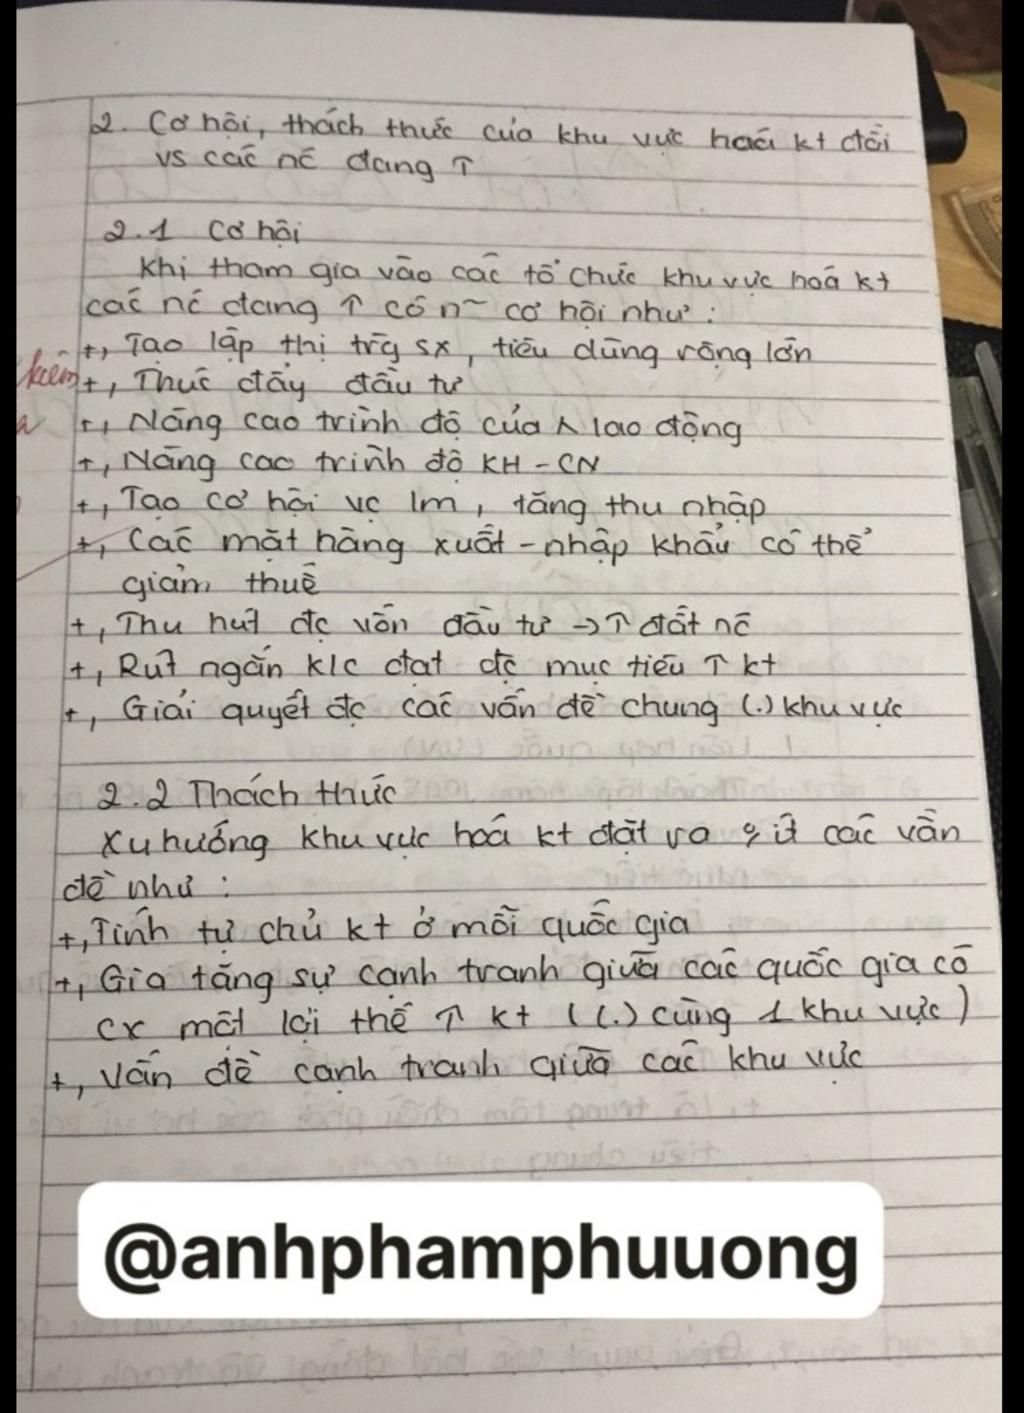 2. Cơ hội, thách thức của khu vực hoá kt đối
vs các nc đang ↑
2.1 Cơ hội
Khi tham gia vào các tổ chức khu vực hoá kt
các nc đang ↑ có n~ cơ hội như :
+, Tạo lập thị trg sx, tiêu dùng rộng lớn
kiếm
+, Thúc đẩy đầu tư
+, Nâng cao trình độ của ^ lao động
+, Nâng cao trình độ KH - CN
+, Tạo cơ hội vc lm, tăng thu nhập
+, Các mặt hàng xuất - nhập khẩu có thể
giảm thuế
+, Thu hút đc vốn đầu tư -> ↑ đất nc
+, Rút ngắn k/c đạt đc mục tiêu ↑ kt
+, Giải quyết đc các vấn đề chung (.) khu vực
2.2 Thách thức
Xu hướng khu vực hoá kt đặt ra ít các vấn
đề như :
+, Tính tự chủ kt ở mỗi quốc gia
+, Gia tăng sự cạnh tranh giữa các quốc gia có
cx một lợi thế ↑ kt ( (.) cùng 1 khu vực )
+, Vấn đề cạnh tranh giữa các khu vực
@anhphamphuuong